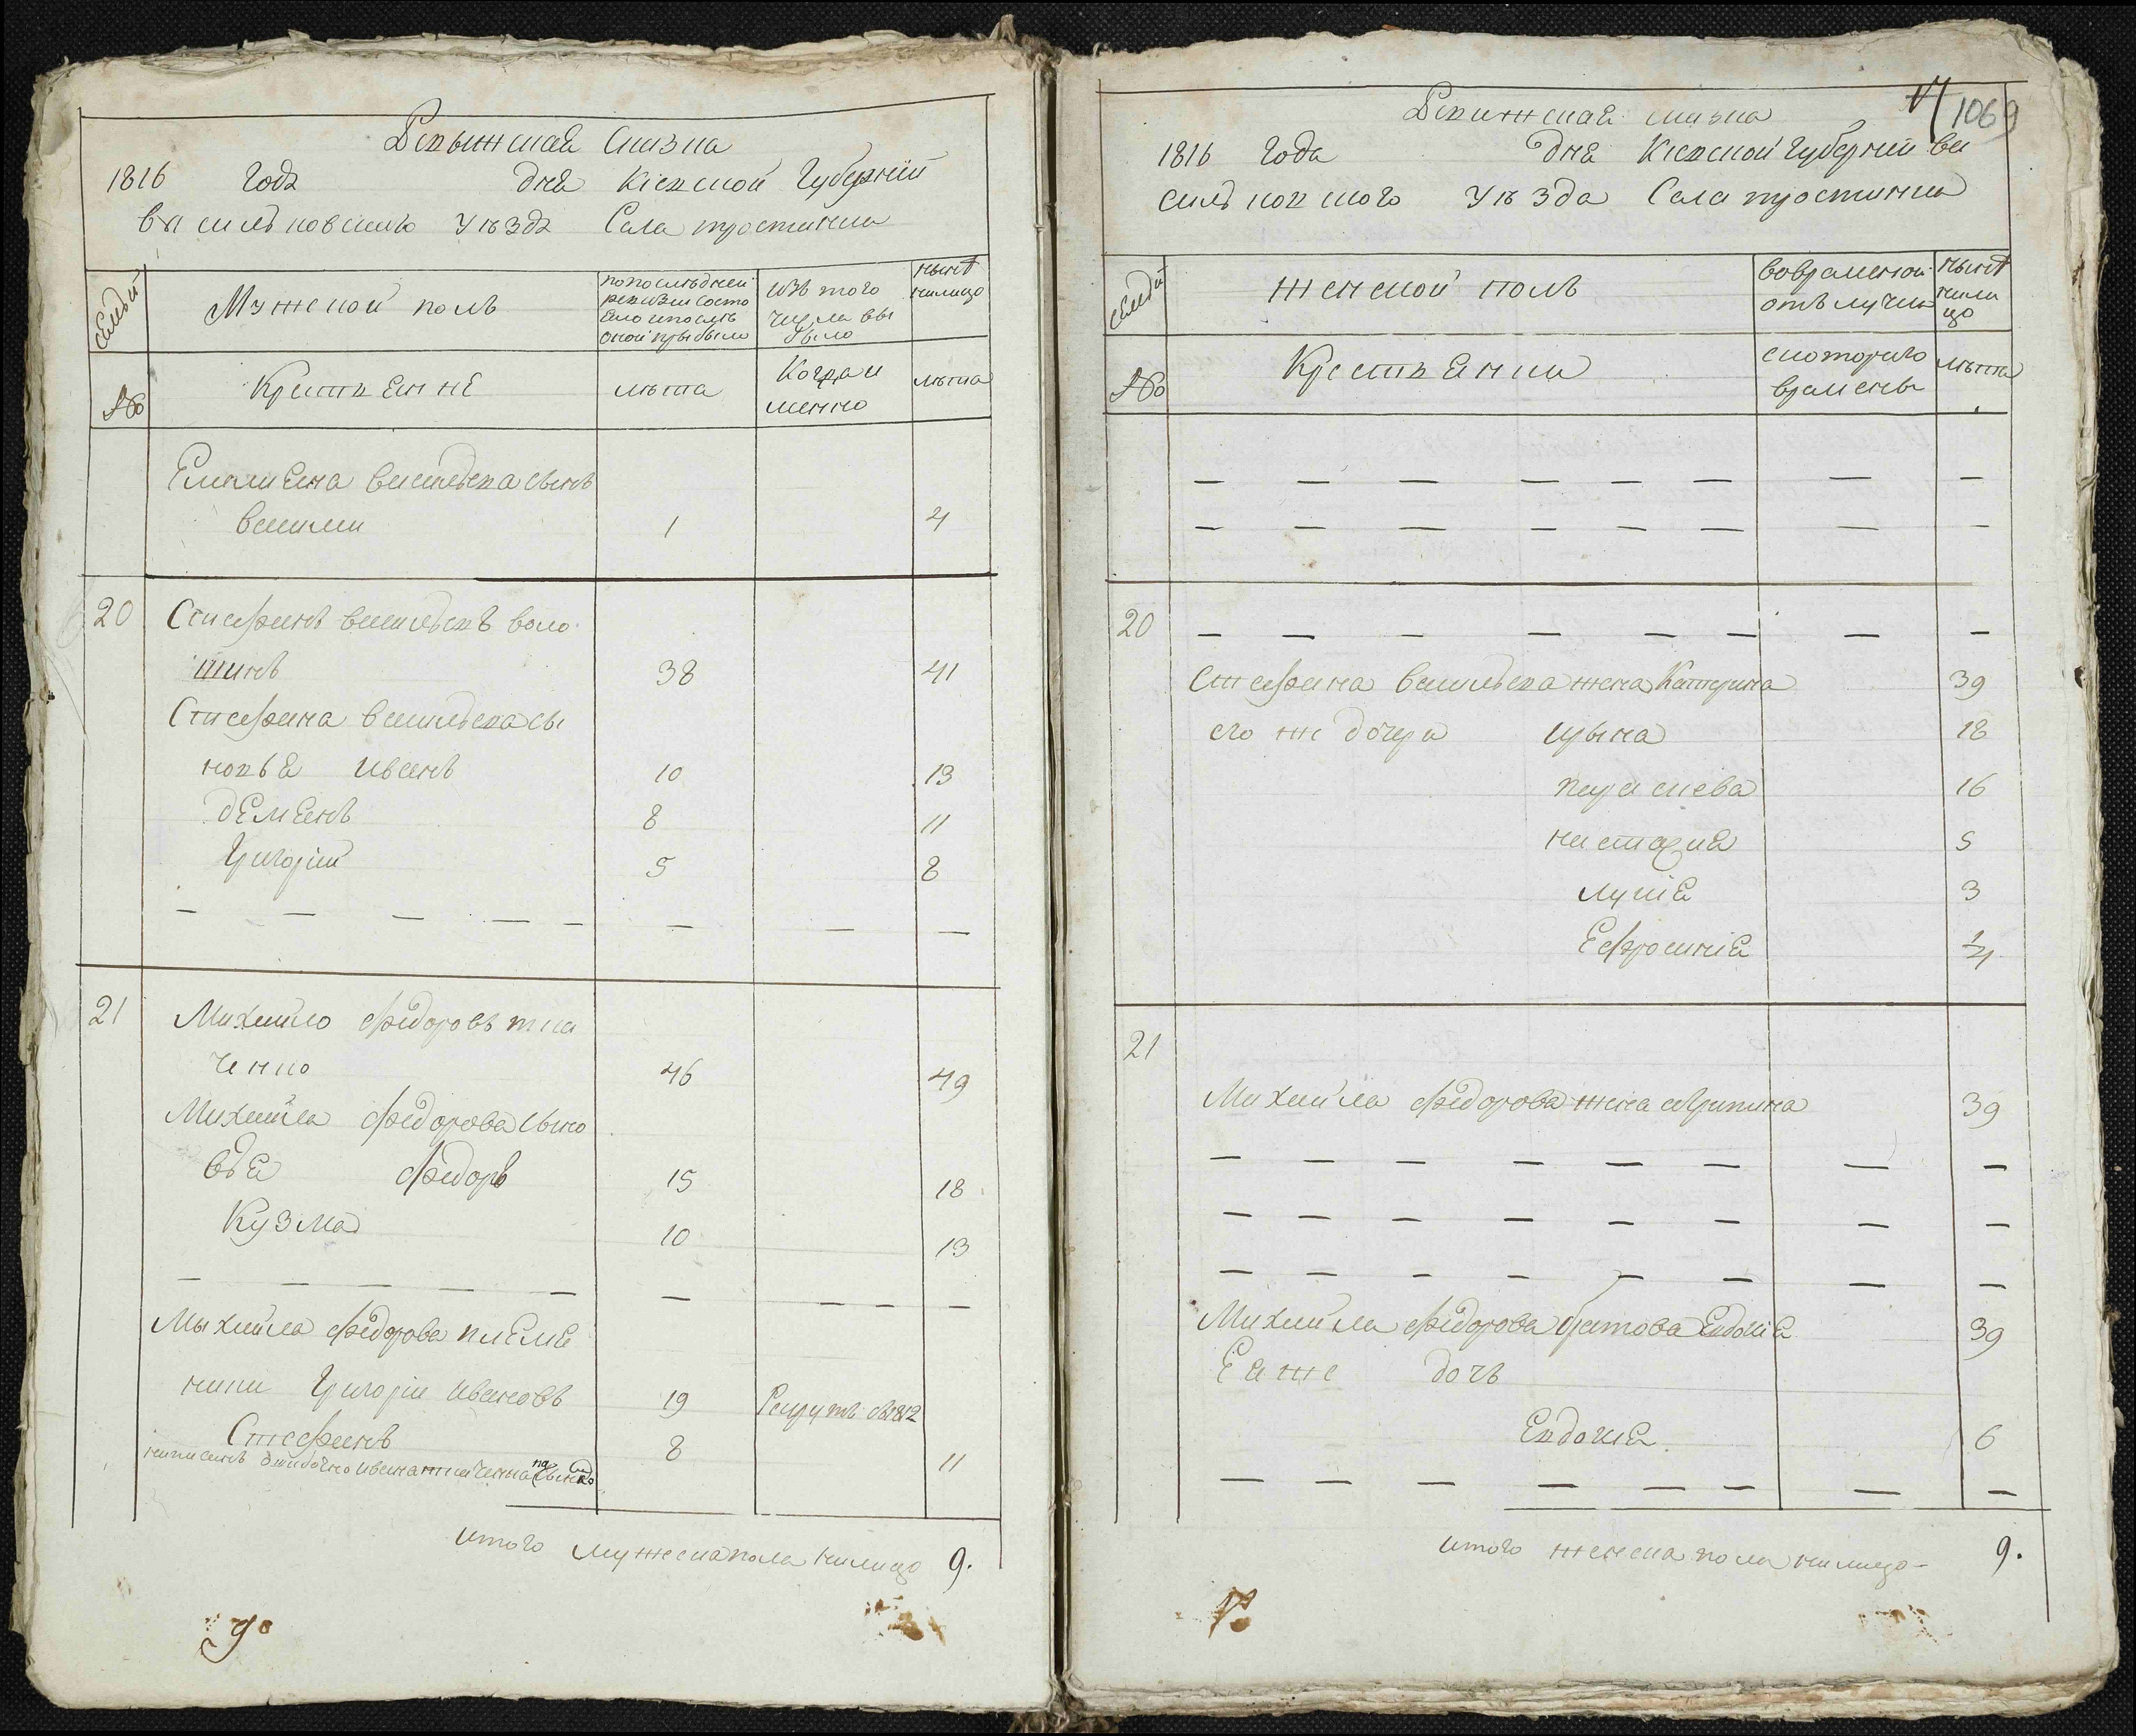 Ревыжская сказка
1816 года дня Кіевской Губерніи
василковского уѣзда Села простинки
семьи
Мужеской полъ
попоследней ревизии состояло ипосле оной прыбыло
изъ того числа выбыло
нынѣ налицо
№
Крестяяне
лѣта
Когда именно
лѣта
Емелияна василѣева сынъ
василий 1 4
20 Стефанъ василѣевъ воло
шинъ 38 41
Стефана василѣева сы
новья иванъ 10 13
демянъ 8 11
Григорій 5 8
21 Михайло федоровъ тка
ченко 46 49
Михайла федорова сыно
вья федоръ 15 18
Кузма 10 13
Мыхайла федорова племя
ники Григорій ивановъ 19 Рекрутъ въ1812
Стефанъ 8 11
написанъ ошибочно ивана ткаченка
итого мужеска пола налицо 9.
1069
Ревижская сказка
1816 года дня Кіевской Губерній ва
силковского уѣзда Села простинки
семьи
женской полъ
вовременой отълучки
нынѣ налицо
№
Крестяянки
скоторого времены
лѣта
20
Стефана василѣева жена Катерина 39
его же дочера ирына 18
параскева 16
настасия 5
лукія 3
Ефросинія 1/4
21
Михайла федорова жена Агрипина 39
Михайла федорова братова Евдокія 39
Ея же дочь
Евдокия 6
итого женска пола налицо 9.